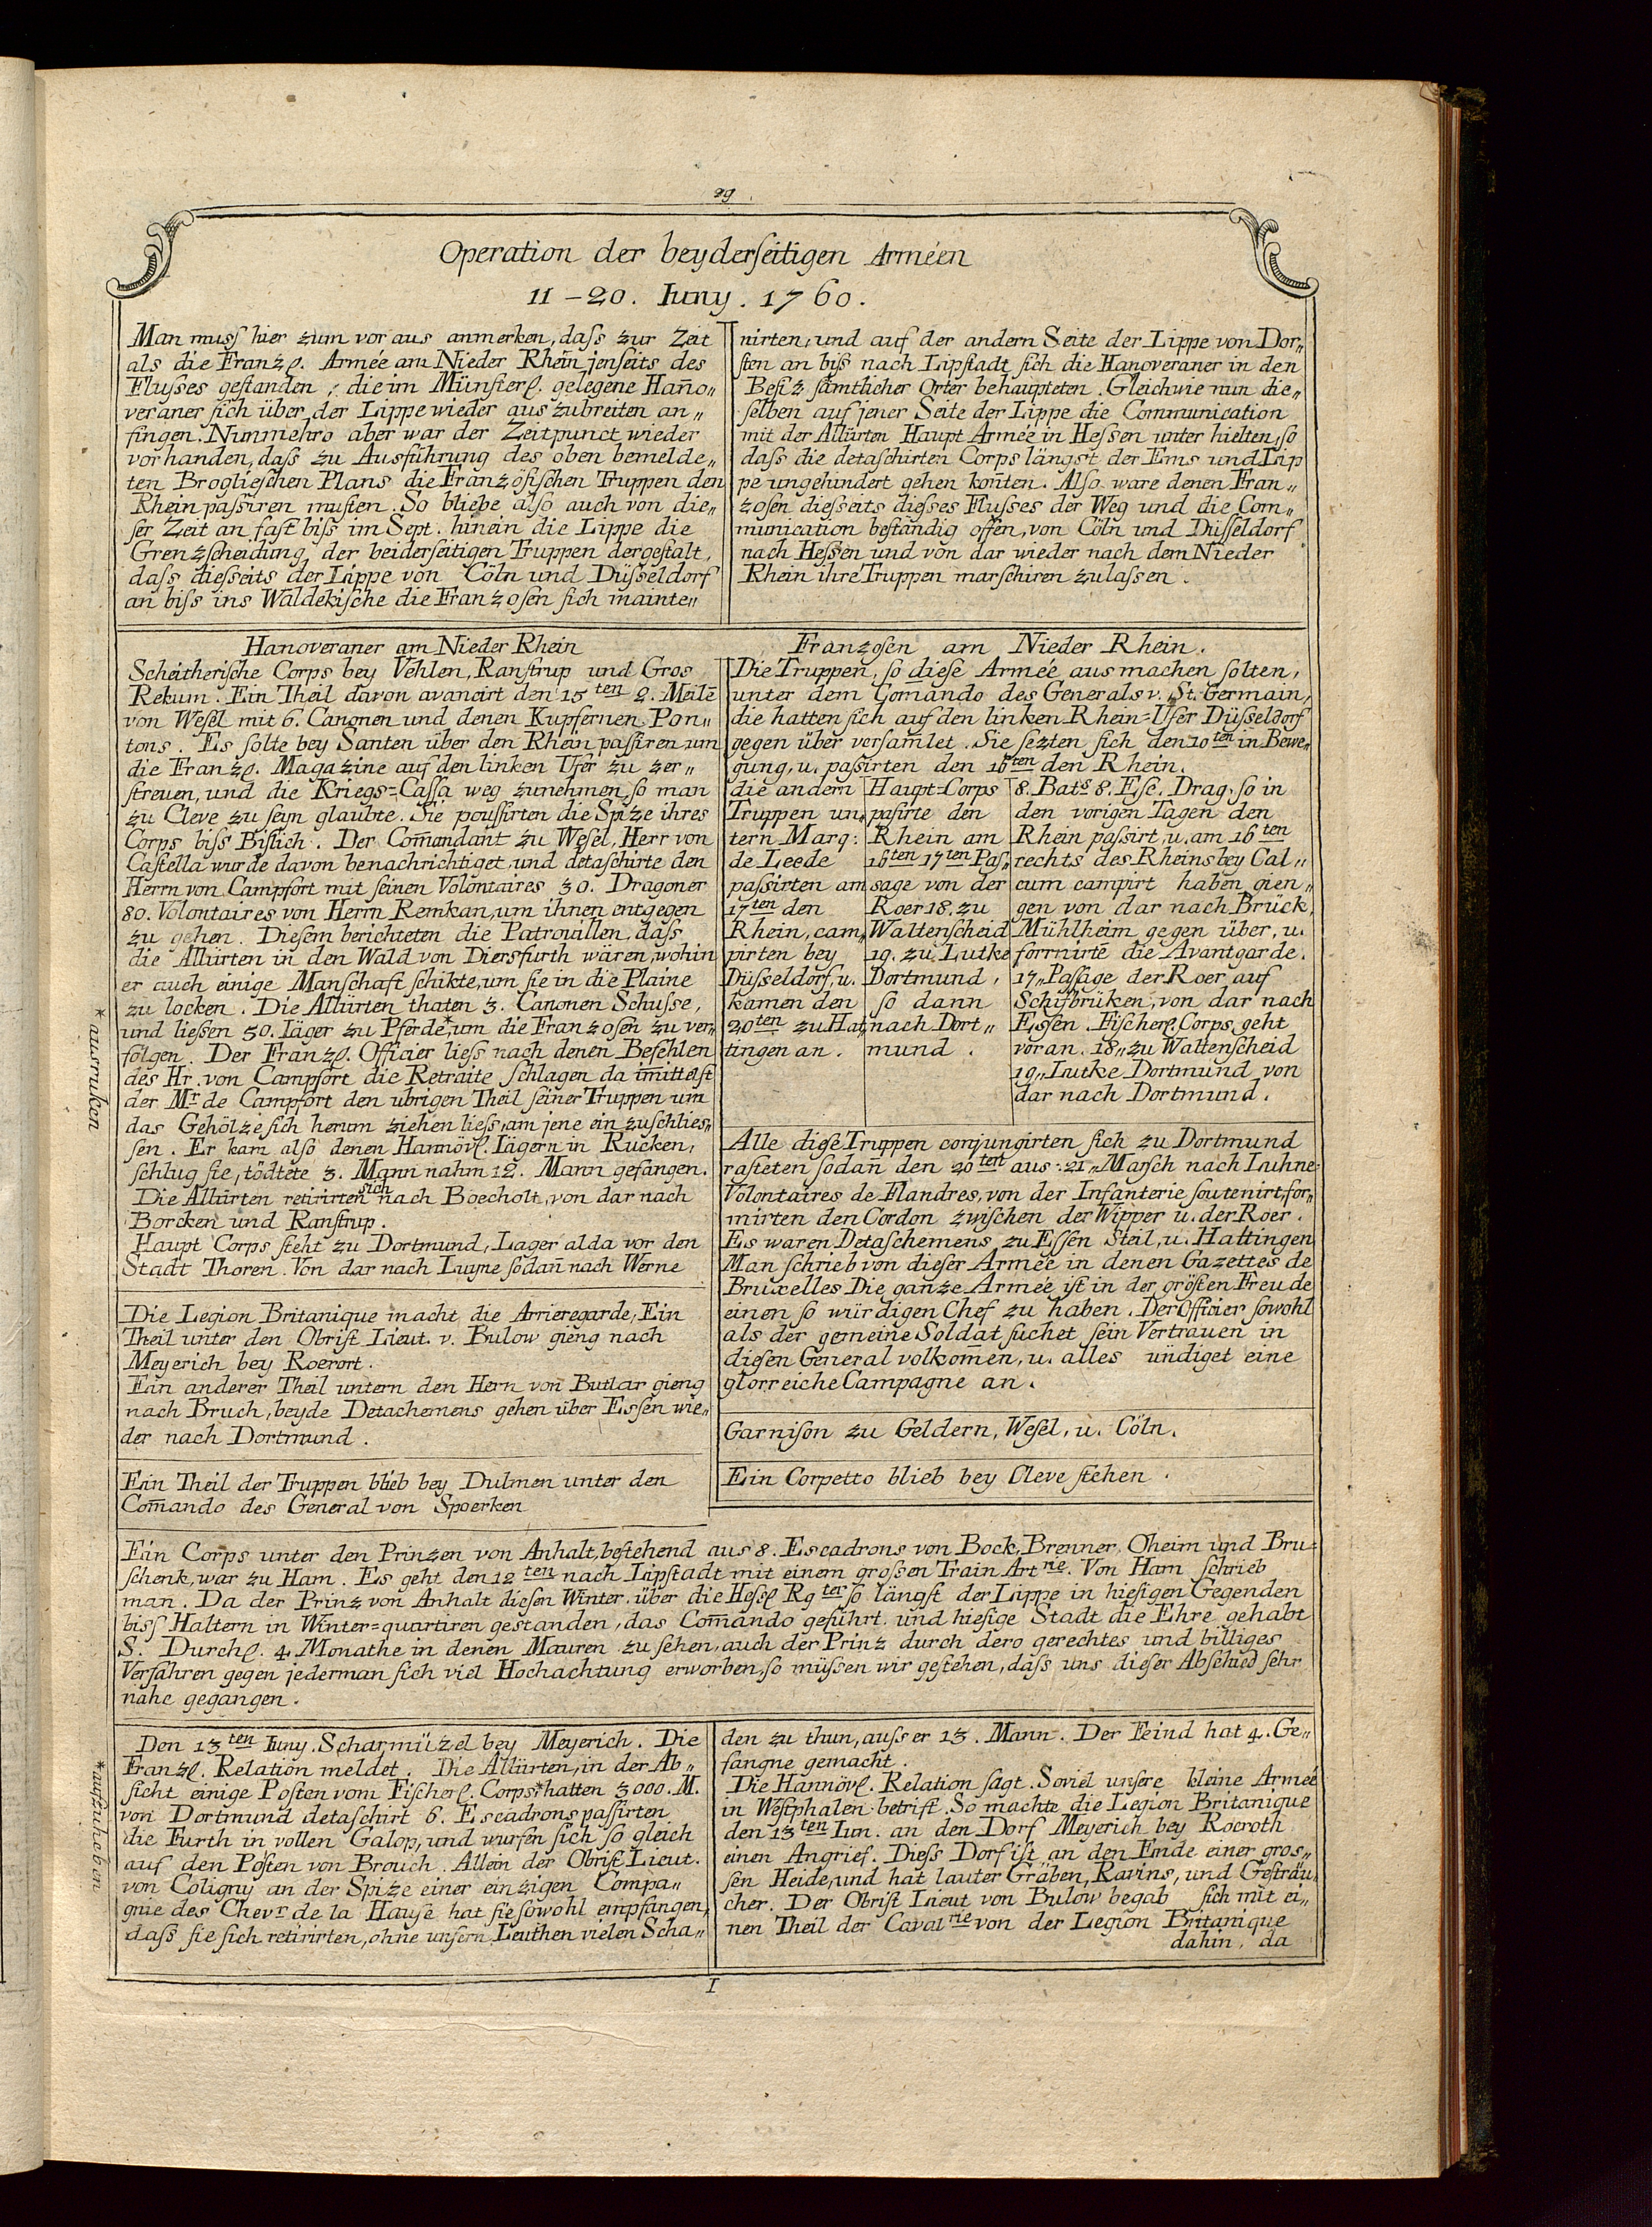 29
Operation der beyderseitigen Arméen
11-20. Iuny. 1760.
Man muss hier zum voraus anmerken, dass zur Zeit
als die Franzl. Armée am Nieder Rhein jenseits des
Flusses gestanden; die im Münsterl. gelegene Han̄o„
veraner sich über der Lippe wieder auszubreiten an„
fingen. Nunmehro aber war der Zeitpunct wieder
vorhanden, dass zu Ausführung des oben bemelde„
ten Broglieschen Plans die Französischen Truppen den
Rhein passiren musten. So bliebe also auch von die„
ser Zeit an fast biss im Sept. hinein die Lippe die
Grenzscheidung der beiderseitigen Truppen dergestalt,
dass diesseits der Lippe von Cöln und Düsseldorf
an biss ins Waldekische die Franzosen sich mainte„
nirten, und auf der andern Seite der Lippe von Dor„
sten an biss nach Lipstadt sich die Hanoveraner in den
Besiz sämtlicher Orter behaupteten. Gleichwie nun die„
selben auf jener Seite der Lippe die Communication
mit der Allürten Haupt Armée in Hessen unter hielten, so
dass die detaschirten Corps längst der Ems und Lip
pe ungehindert gehen kon̄ten. Also ware denen Fran„
zosen diesseits dieses Flusses der Weg und die Com„
munication beständig offen, von Cöln und Düsseldorf
nach Hessen und von dar wieder nach dem Nieder
Rhein ihre Truppen marschiren zulassen.
Hanoveraner am Nieder Rhein
Scheitherische Corps bey Vehlen, Ranstrup und Gros
Rekum. Ein Theil davon avancirt den 15ten 2. Meilē
von Wesel mit 6. Canonen und denen Kupfernen Pon„
tons. Es solte bey Santen über den Rhein passiren um
die Franzl. Magazine auf den linken Ufer zu zer„
streuen, und die Kriegs=Cassa weg zunehmen, so man
zu Cleve zu seyn glaubte. Sie poussirten die Spize ihres
Corps biss Bislich. Der Com̄andant zu Wesel, Herr von
Castella wurde davon benachrichtiget und detaschirte den
Herrn von Campfort mit seinen Volontaires 30. Dragoner
80. Volontaires von Herrn Remkan, um ihnen entgegen
zu gehen. Diesem berichteten die Patrouillen, dass
die Allürten in den Wald von Diersfurth wären, wohin
er auch einige Manschaft schikte, um sie in die Plaine
zu locken. Die Allürten thaten 3. Canonen Schusse,
und liessen 50. Iäger zu Pferde*, um die Franzosen zu ver„
folgen. Der Franzl. Officier liess nach denen Befehlen
des Hr. von Campfort die Retraite schlagen da im̄ittelst
der Mr. de Campfort den ubrigen Theil seiner Truppen um
das Gehölze sich herum ziehen liess, am jene ein zuschlies„
sen. Er kam also denen Hannövl. Iägern in Rucken,
schlug sie, tödtete 3. Mann nahm 12. Mann gefangen.
Die Allürten retirirten sich nach Boecholt, von dar nach
Borcken und Ranstrup.
Haupt Corps steht zu Dortmund, Lager alda vor den
Stadt Thoren. Von dar nach Luyne sodan̄ nach Werne
*ausruken
Die Legion Britanique macht die Arrieregarde, Ein
Theil unter den Obrist Lieut. v. Bulow gieng nach
Meyerich bey Roerort.
Ein anderer Theil untern den Hern von Butlar gieng
nach Bruch, beyde Detachemens gehen über Essen wie„
der nach Dortmund.
Ein Theil der Truppen blieb bey Dulmen unter den
Com̄ando des General von Spoerken
Franzosen am Nieder Rhein.
Die Truppen, so diese Armée ausmachen solten,
unter dem Com̄ando des Generals v. St. Germain,
die hatten sich auf den linken Rhein=Ufer Düsseldorf
gegen über versam̄let. Sie sezten sich den 10ten in Bewe„
gung, u. passirten den 16ten den Rhein.
die andern
Truppen un„
tern Marq:
de Leede
passirten am
17ten den
Rhein, cam„
pirten bey
Düsseldorf, u.
kamen den
20ten zu Hat„
tingen an.
Haupt=Corps
pasirte den
Rhein am
16ten 17ten Pas„
sage von der
Roer 18. zu
Waltenscheid
19. zu Lutke
Dortmund,
so dann
nach Dort„
mund.
8. Bats 8. Esc. Drag. so in
den vorigen Tagen den
Rhein passirt, u. am 16ten
rechts des Rheins bey Cal„
cum campirt haben, gien„
gen von dar nach Brück,
Mühlheim gegen über, u.
formirtē die Avantgarde.
17„ Passage der Roer auf
Schifbrüken, von dar nach
Essen. Fischerl. Corps geht
voran. 18„ zu Waltenscheid
19„ Lutke Dortmund von
dar nach Dortmund.
Alle diese Truppen conjungirten sich zu Dortmund
rasteten sodan̄ den 20ten aus. 21„ Marsch nach Luhne.
Volontaires de Flandres, von der Infanterie soutenirt, for„
mirten den Cordon zwischen der Wipper u. der Roer.
Es waren Detaschemens zu Essen Steil, u. Hattingen
Man schrieb von dieser Armée in denen Gazettes de
Bruxelles Die ganze Armée ist in der grösten Freude
einen so würdigen Chef zu haben. Der Officier sowohl
als der gemeine Soldat suchet sein Vertrauen in
diesen General volkom̄en, u. alles ündiget eine
glorreiche Campagne an.
Garnison zu Geldern, Wesel, u. Cöln.
Ein Corpetto blieb bey Cleve stehen.
Ein Corps unter den Prinzen von Anhalt, bestehend aus 8. Escadrons von Bock, Bremer, Oheim und Bru=
schenk, war zu Ham. Es geht den 12ten nach Lipstadt mit einem grossen Train Artrie. Von Ham schrieb
man. Da der Prinz von Anhalt diesen Winter über die Hessl Rgter so längst der Lippe in hiesigen Gegenden
biss Haltern in Winter=quartiren gestanden, das Com̄ando geführt und hiesige Stadt die Ehre gehabt
S. Durchl. 4. Monathe in denen Mauren zu sehen, auch der Prinz durch dero gerechtes und billiges
Verfahren gegen jederman sich viel Hochachtung erworben, so müssen wir gestehen, dass uns dieser Abschied sehr
nahe gegangen.
Den 13ten Iuny. Scharmüzel bey Meyerich. Die
Franzl. Relation meldet. Die Allürten, in der Ab„
sicht einige Posten vom Fischerl. Corps* hatten 3000. M.
von Dortmund detaschirt 6. Escadrons passirten
die Furth in vollen Galop, und wurfen sich so gleich
auf den Posten von Brouch. Allein der Obrist Lieut.
von Coligny an der Spize einer einzigen Compa„
gnie des Chevr. de la Hause hat sie sowohl empfangen,
dass sie sich retirirten, ohne unsern Leuthen vielen Scha„
*aufzuheben
den zu thun, ausser 13. Mann. Der Feind hat 4. Ge„
fangne gemacht.
Die Hannövl. Relation sagt. Soviel unsere kleine Armeé
in Westphalen betrift. So machte die Legion Britanique
den 13ten Iun. an den Dorf Meyerich bey Roeroth
einen Angrief. Diess Dorf ist an den Ende einer gros„
sen Heide, und hat lauter Gräben, Ravins, und Gesträu„
cher. Der Obrist Lieut von Bulow begab sich mit ei„
nen Theil der Cavalrie von der Legion Britanique
dahin, da
I